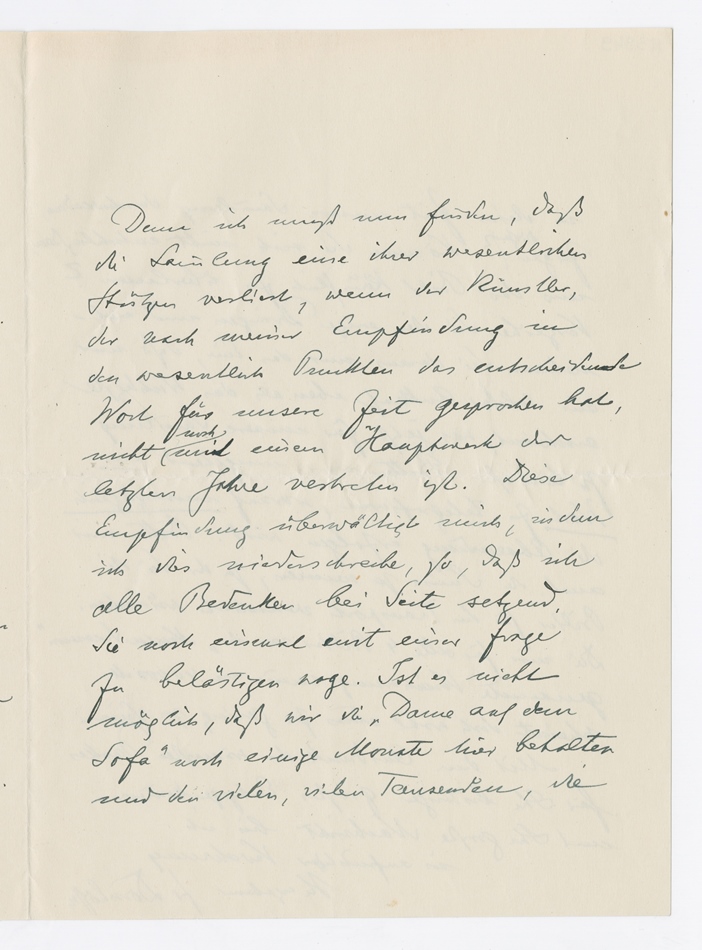 Denn ich muß nun finden, daß
die Samlung eine ihrer wesentlichen
Stützen verliert, wenn der Künstler,
der nach meiner Empfindung in
den wesentlich Punkten das entscheidende
Wort für unsere Zeit gesprochen hat,
nicht noch mit einem Hauptwerk der
letzten Jahre vertreten ist. Diese
Empfindung überwältigt mich, indem
ich dies niederschreibe, so, daß ich
alle Bedenken bei Seite setzend,
Sie noch einmal mit einer Frage
zu belästigen wage. Ist es nicht
möglich, daß wir die „Dame auf dem
Sofa" noch einige Monate hier behalten
und den vielen, vielen Tausenden, die